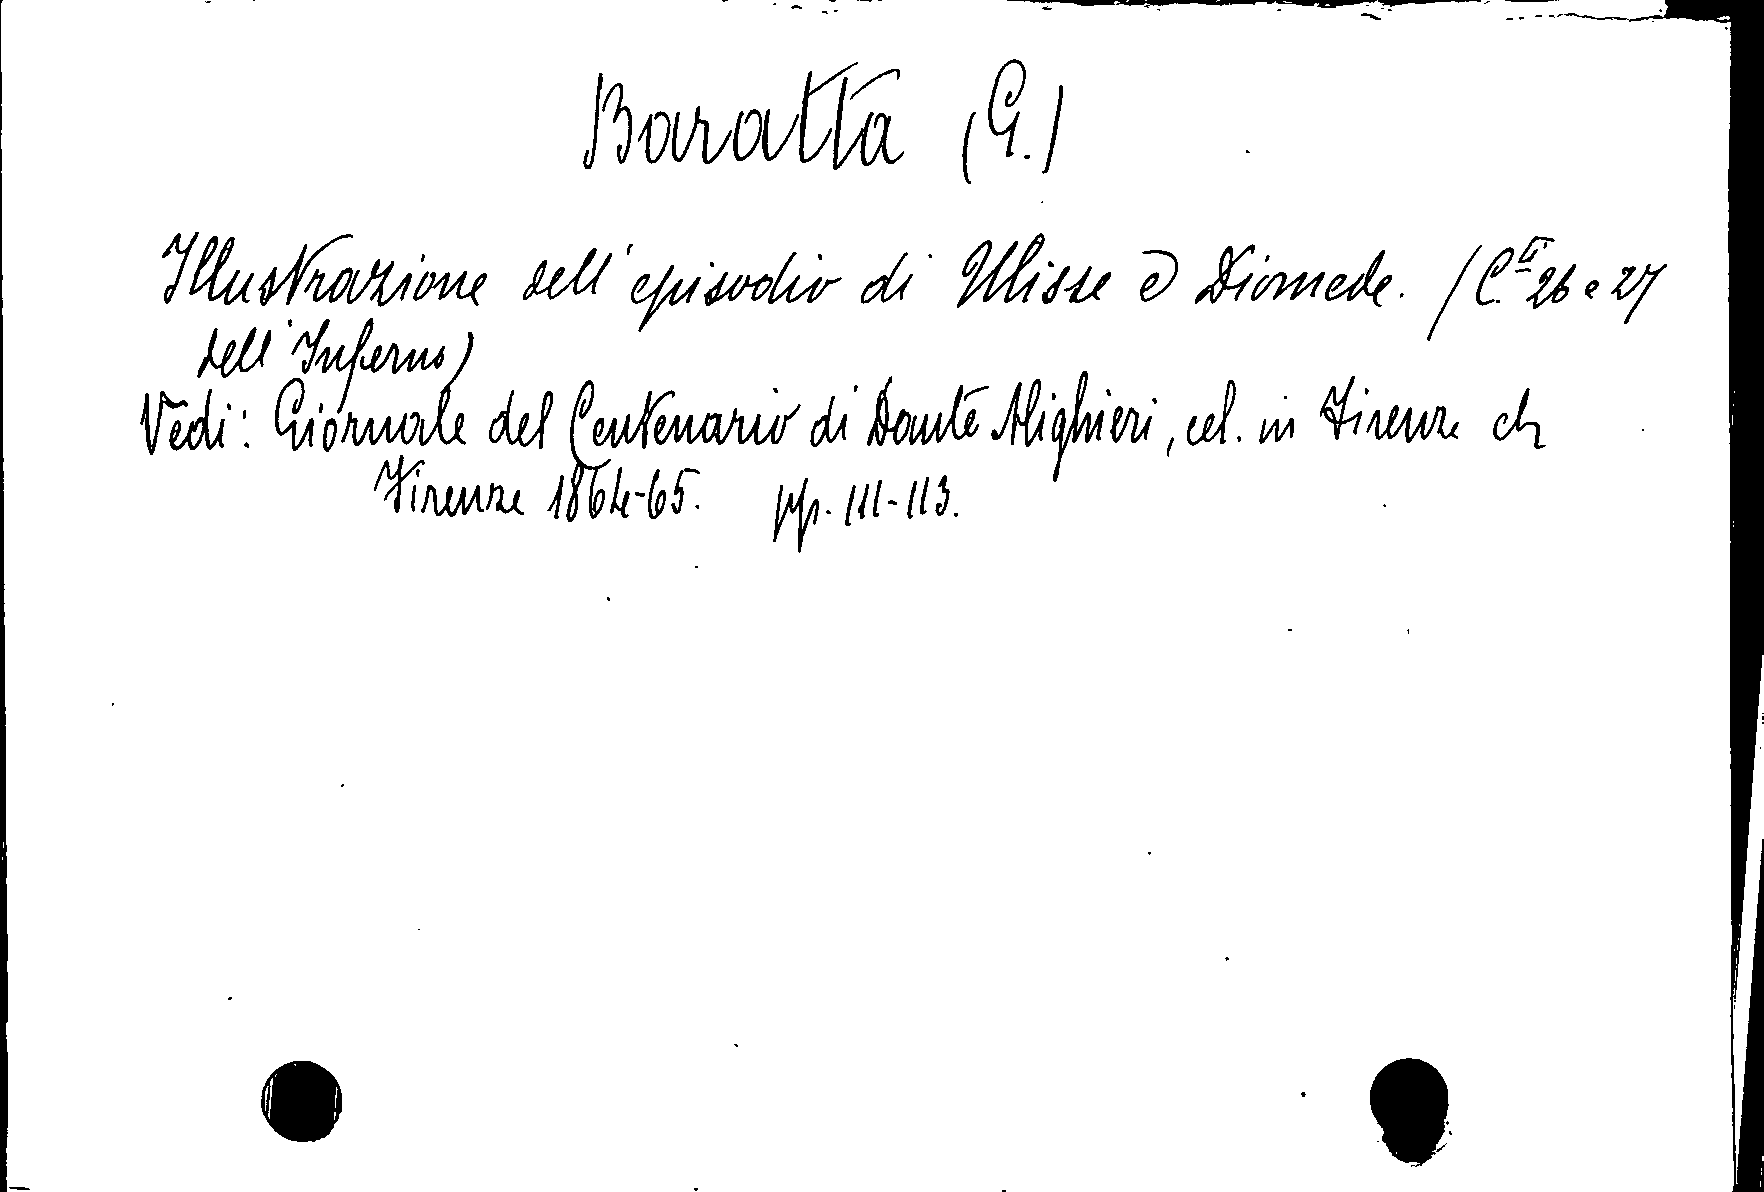 Baratta (G.)
Illustrazione dell' episodio di Ulisse e Diomede. (C.ti 26 e 27
dell' Inferno)
Vedi: Giornale del Centenario di Dante Alighieri, cel. in Firenze
Firenze 1864-65. pp. 111-113.